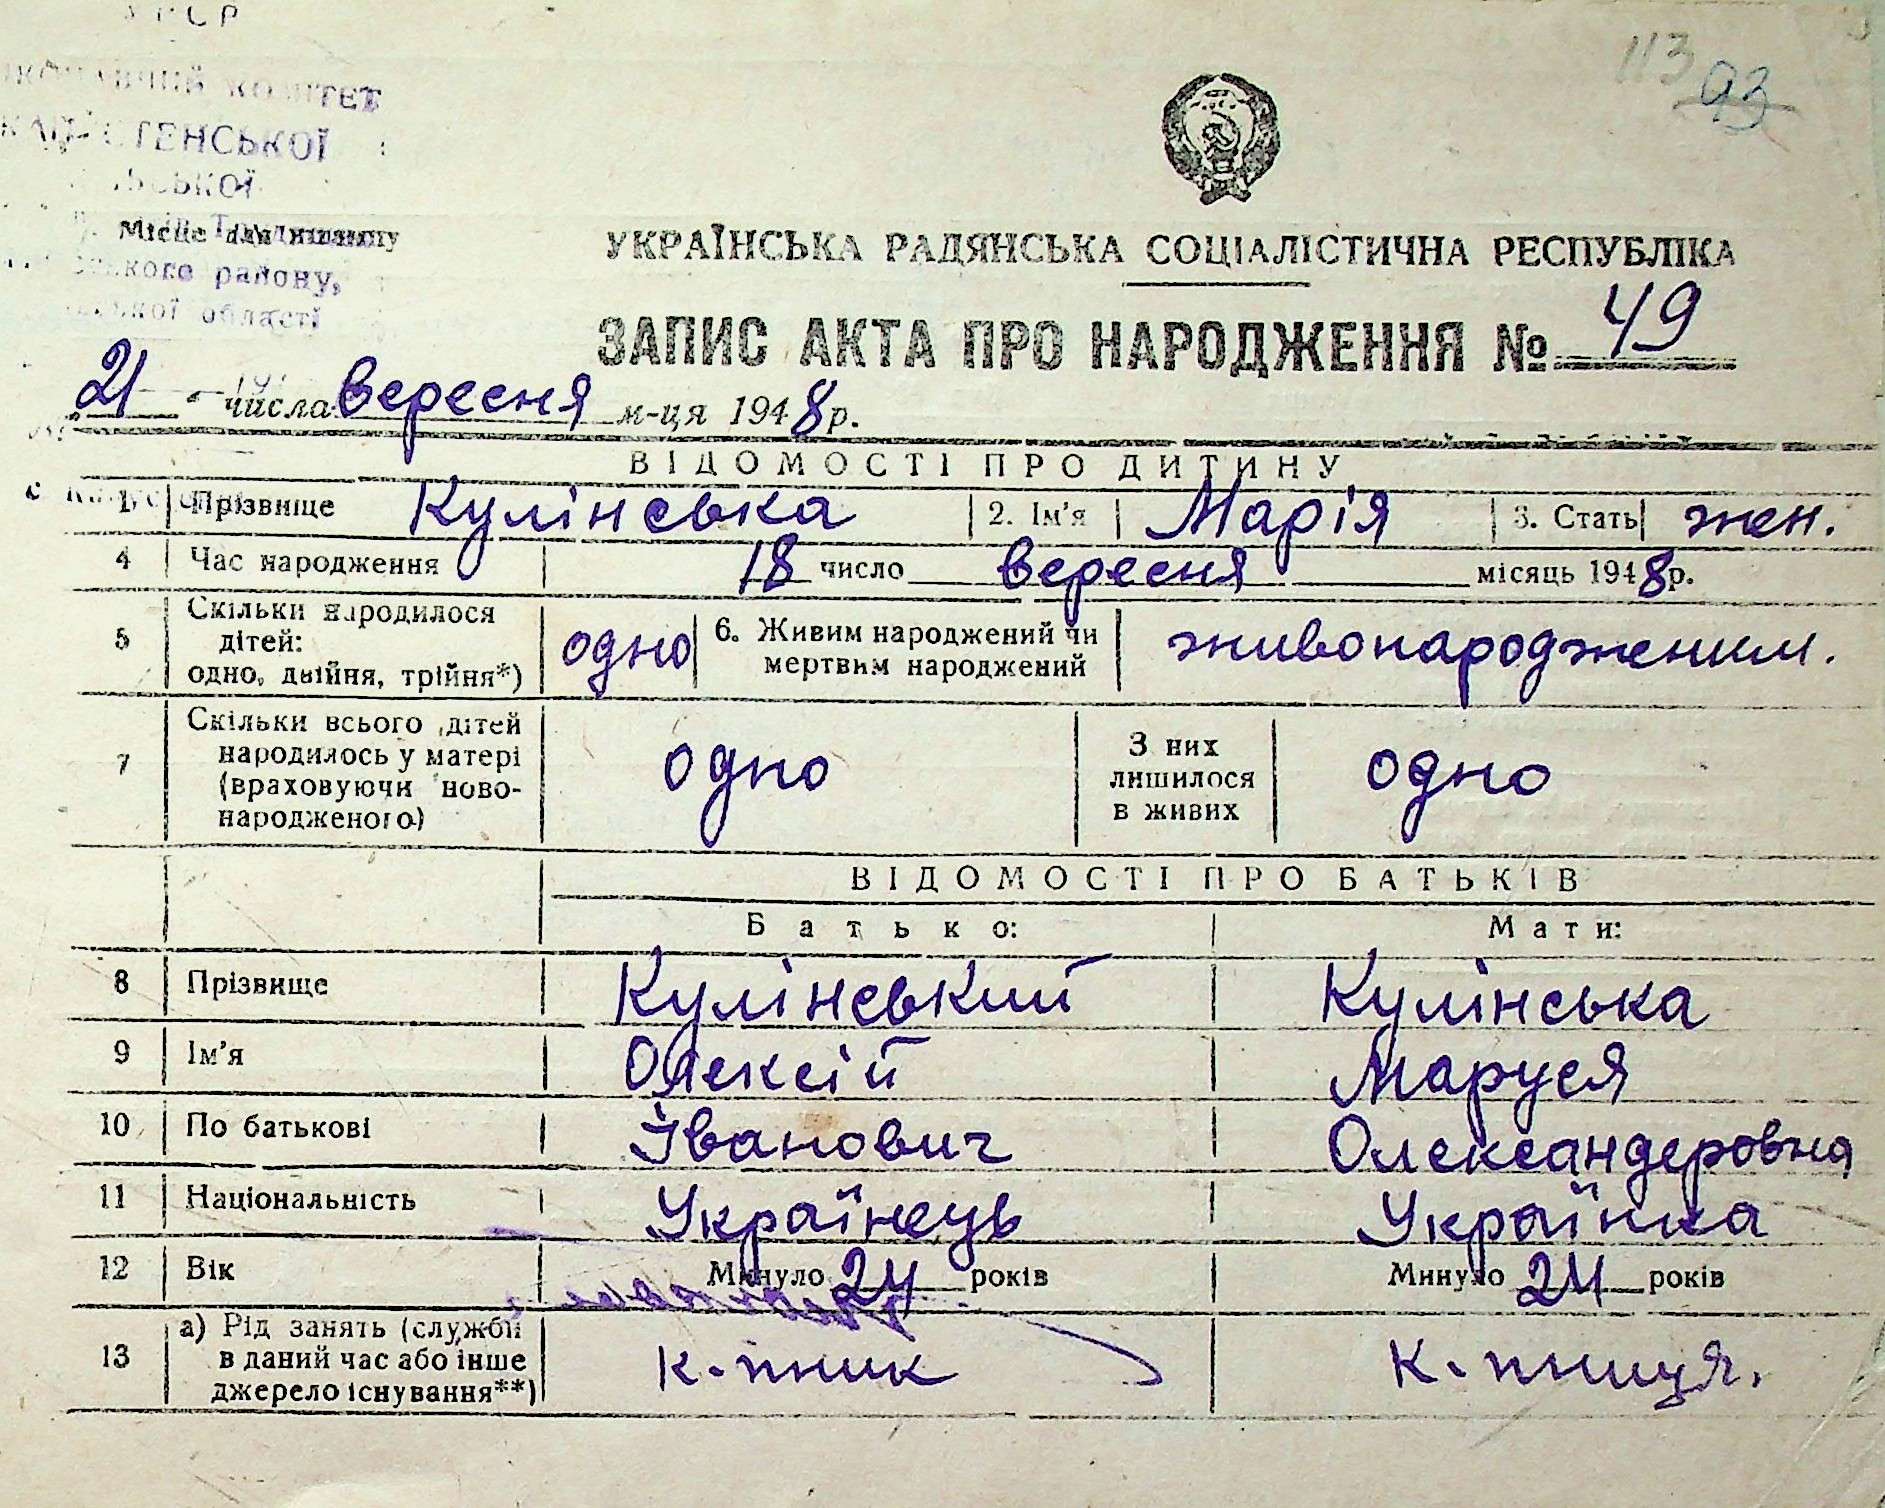 113 93
КОМІТЕТ
УКРАЇНСЬКА РАДЯНСЬКА СОЦІАЛІСТИЧНА РЕСПУБЛІКА
району,
області
ЗАПИС АКТА ПРО НАРОДЖЕННЯ № 49
21 числа вересня м-ця 1948 р.
ВІДОМОСТІ ПРО ДИТИНУ
1 Прізвище Кулінська 2. Ім'я Марія 3. Стать жен.
4 Час народження 18 число вересня місяць 1948 р.
5 Скільки народилося дітей: одно, двійня, трійня*) одно 6. Живим народжений чи мертвим народжений живонародженим.
7 Скільки всього дітей народилось у матері (враховуючи новонародженого) одно З них лишилося в живих одно
ВІДОМОСТІ ПРО БАТЬКІВ
Батько: Мати:
8 Прізвище Кулінський Кулінська
9 Ім'я Олексій Маруся
10 По батькові Іванович Олександеровна
11 Національність Українець Українка
12 Вік Минуло 24 років Минуло 24 років
13 а) Рід занять (служби в даний час або інше джерело існування**) к-пник к-пниця.